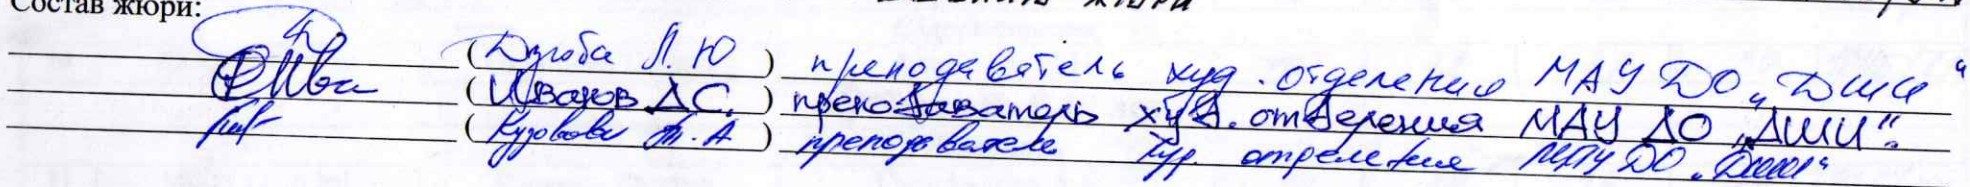 Состав жюри:
жюри
(Дзюба Л. Ю) преподаватель худ. отделения МАУ ДО "ДШИ"
(Иванов Д.С.) преподаватель худ. отделения МАУ ДО "ДШИ".
(А.) преподаватель худ. отделения МАУ ДО "ДШИ"